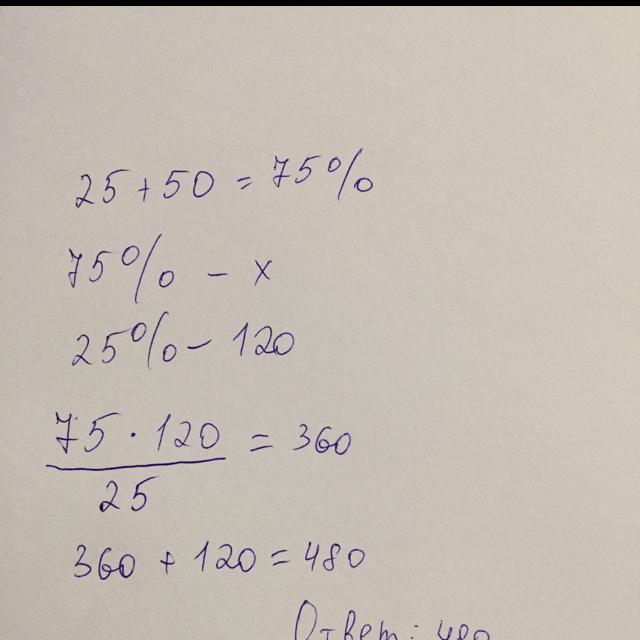 25 + 50 = 75%
75% - x
25% - 120
75 · 120 = 360
25
360 + 120 = 480
Ответ: 480